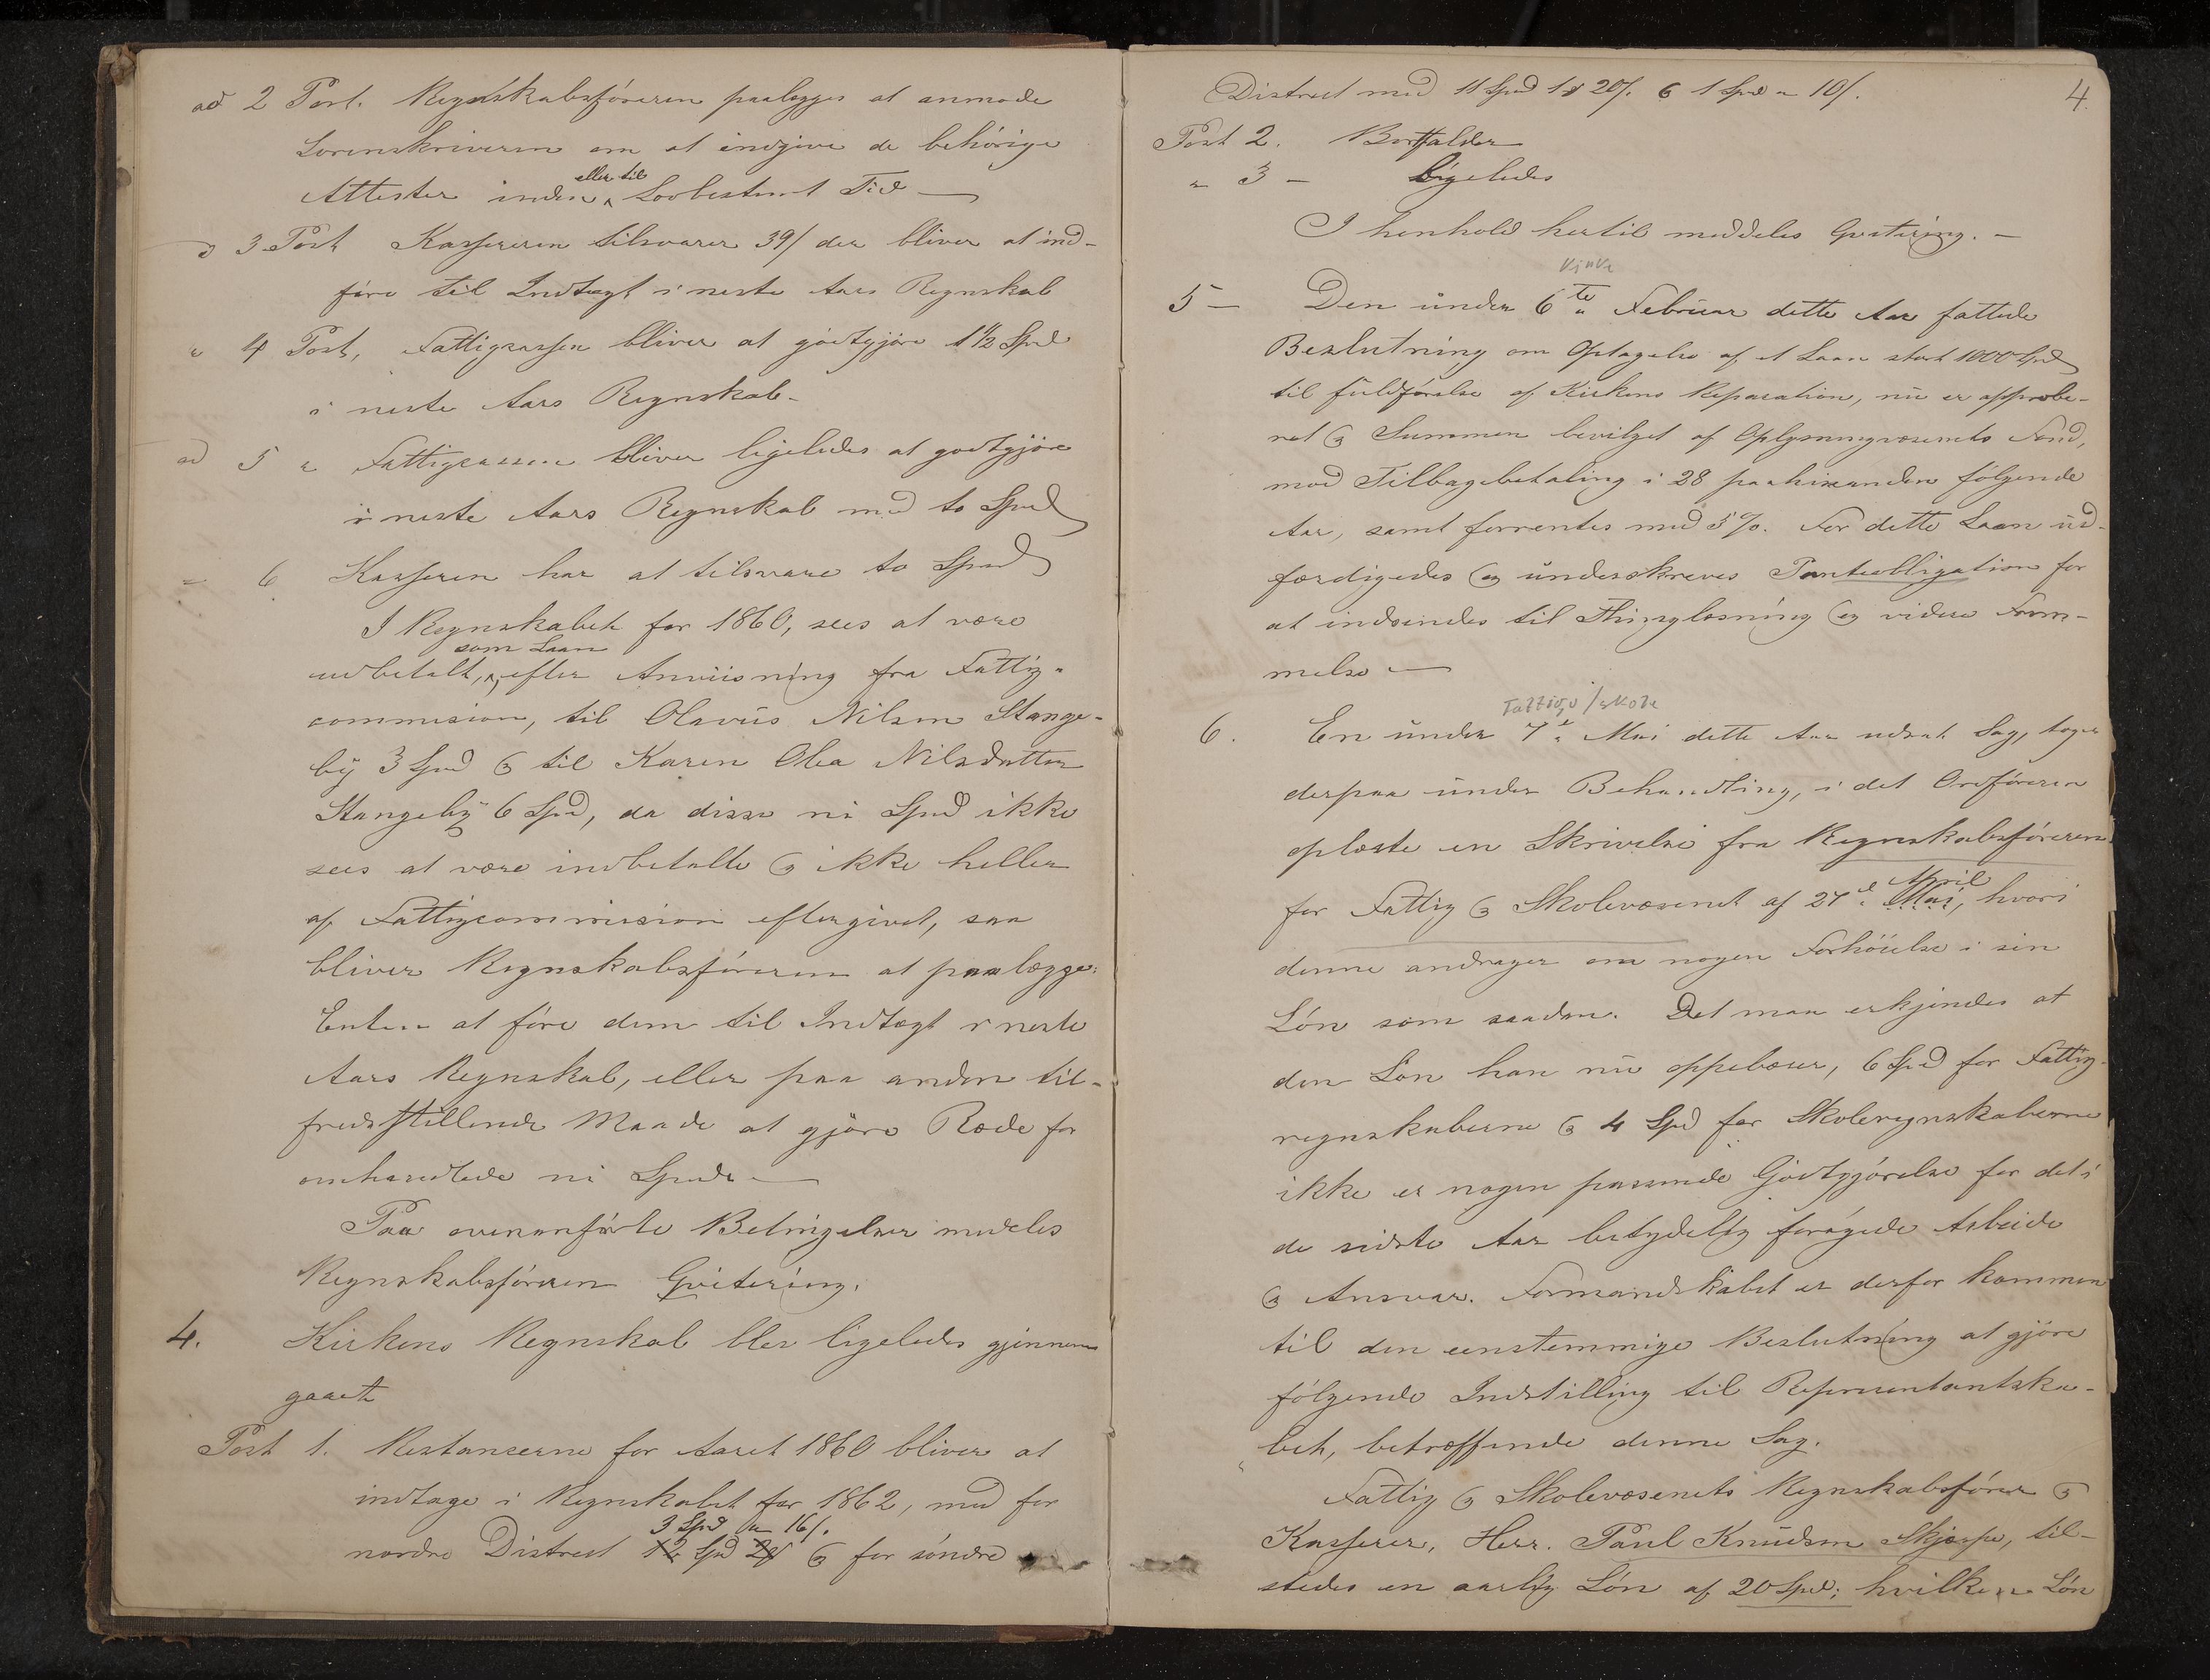 ad 2 Post. Regnskabsføreren paalegges at anmode
Sorenskriveren om at indgive de behørige
eller til
Attester inden Lovbestemt Tid —
d 3 Post Kassereren tilsvarer 39/ der bliver at ind-
føre til Indtægt i neste Aars Regnskab
" 4 Post, Fattigcassen bliver at godtgjøre 1 1/2 Spd
i neste Aars Regnskab -
ad 5 " Fattigcassen bliver ligeledes at godtgjøre
i neste Aars Regnskab med to Spd
" 6 Kasseren har at tilsvare to Spd
I Regnskabet for 1860, sees at være
som Laan
udbetalt, efter Anviisning fra Fattig-
commision, til Olavüs Nilsen Stange-
bÿ 3 Spd og til Karen Olea Nilsdatter
Stangebÿ 6 Spd, da disse ni Spd ikke
sees at være indbetalte og ikke heller
af Fattigcommission eftergivet, saa
bliver Regnskabsføreren at paalægge:
Enten at føre dem til Indtægt i neste
Aars Regnskab, eller paa anden til-
fredsstillende Maade at gjøre Rede for
omhandlede ni Spd —
Paa ovenanførte Betingelser medeles
Regnskabsføreren Qvitering.
4. Kirkens Regnskab blev ligeledes gjennem
gaaet
Post 1. Restanserne for Aaret 1860 bliver at
indtage i Regnskabet for 1862, med for
3 Spd " 16/.
nordre Distrect 12 Spd og for søndre
4.
Distrect med 11 Spd 1 20/. 6 1 Spd " 10/.
Post 2. Bortfalder
" 3 - Ligeledes
I henhold hertil meddeles Qvitering. —
Kirke
5 — Den ünder 6te Februar dette Aar fattede
Beslutning om Optagelse af et Laan stort 1000 Spd
til füldførelse af Kirkens Reparation, nü er approbe-
ret og Summen bevilget af Oplysningvæsenets Fond,
mod Tilbagebetaling i 28 paahinanden følgende
Aar, samt forrentes med 5 %. For dette Laan üd-
færdigedes og ünderskreves Panteobligation for
at indsendes til Thinglæsning og videre Frem-
melse —
Fattigv/skole
6. En ünder 7de Mai dette Aar udsat Sag, toges
derpaa ünder Behandling, i det Ordføreren
oplæste en Skrivelse fra Regnskabsføreren
April
for Fattig og Skolevæsenet af 27de Mai, hvori
denne andrager om nogen Forhøielse i sin
Løn som saadan. Det maa erkjendes at
den Løn han nü oppebærer, 6 Spd for Fattig-
regnskaberne og 4 Spd for Skoleregnskaberne
ikke er nogen passende Godtgjørelse for det i
de sidste Aar betydelig forøgede Arbeide
og Ansvar. Formandskabet er derfor kommen
til den eenstemmige Beslutning at gjøre
følgende Indstilling til Representantska-
bet, betræffende denne Sag.
Fattig og Skolevæsenets Regnskabsfører og
Kasserer, Herr. Paul Knüdsen Skjerpe, til-
stedes en aarlig Løn af 20 Spd; hvilken Løn